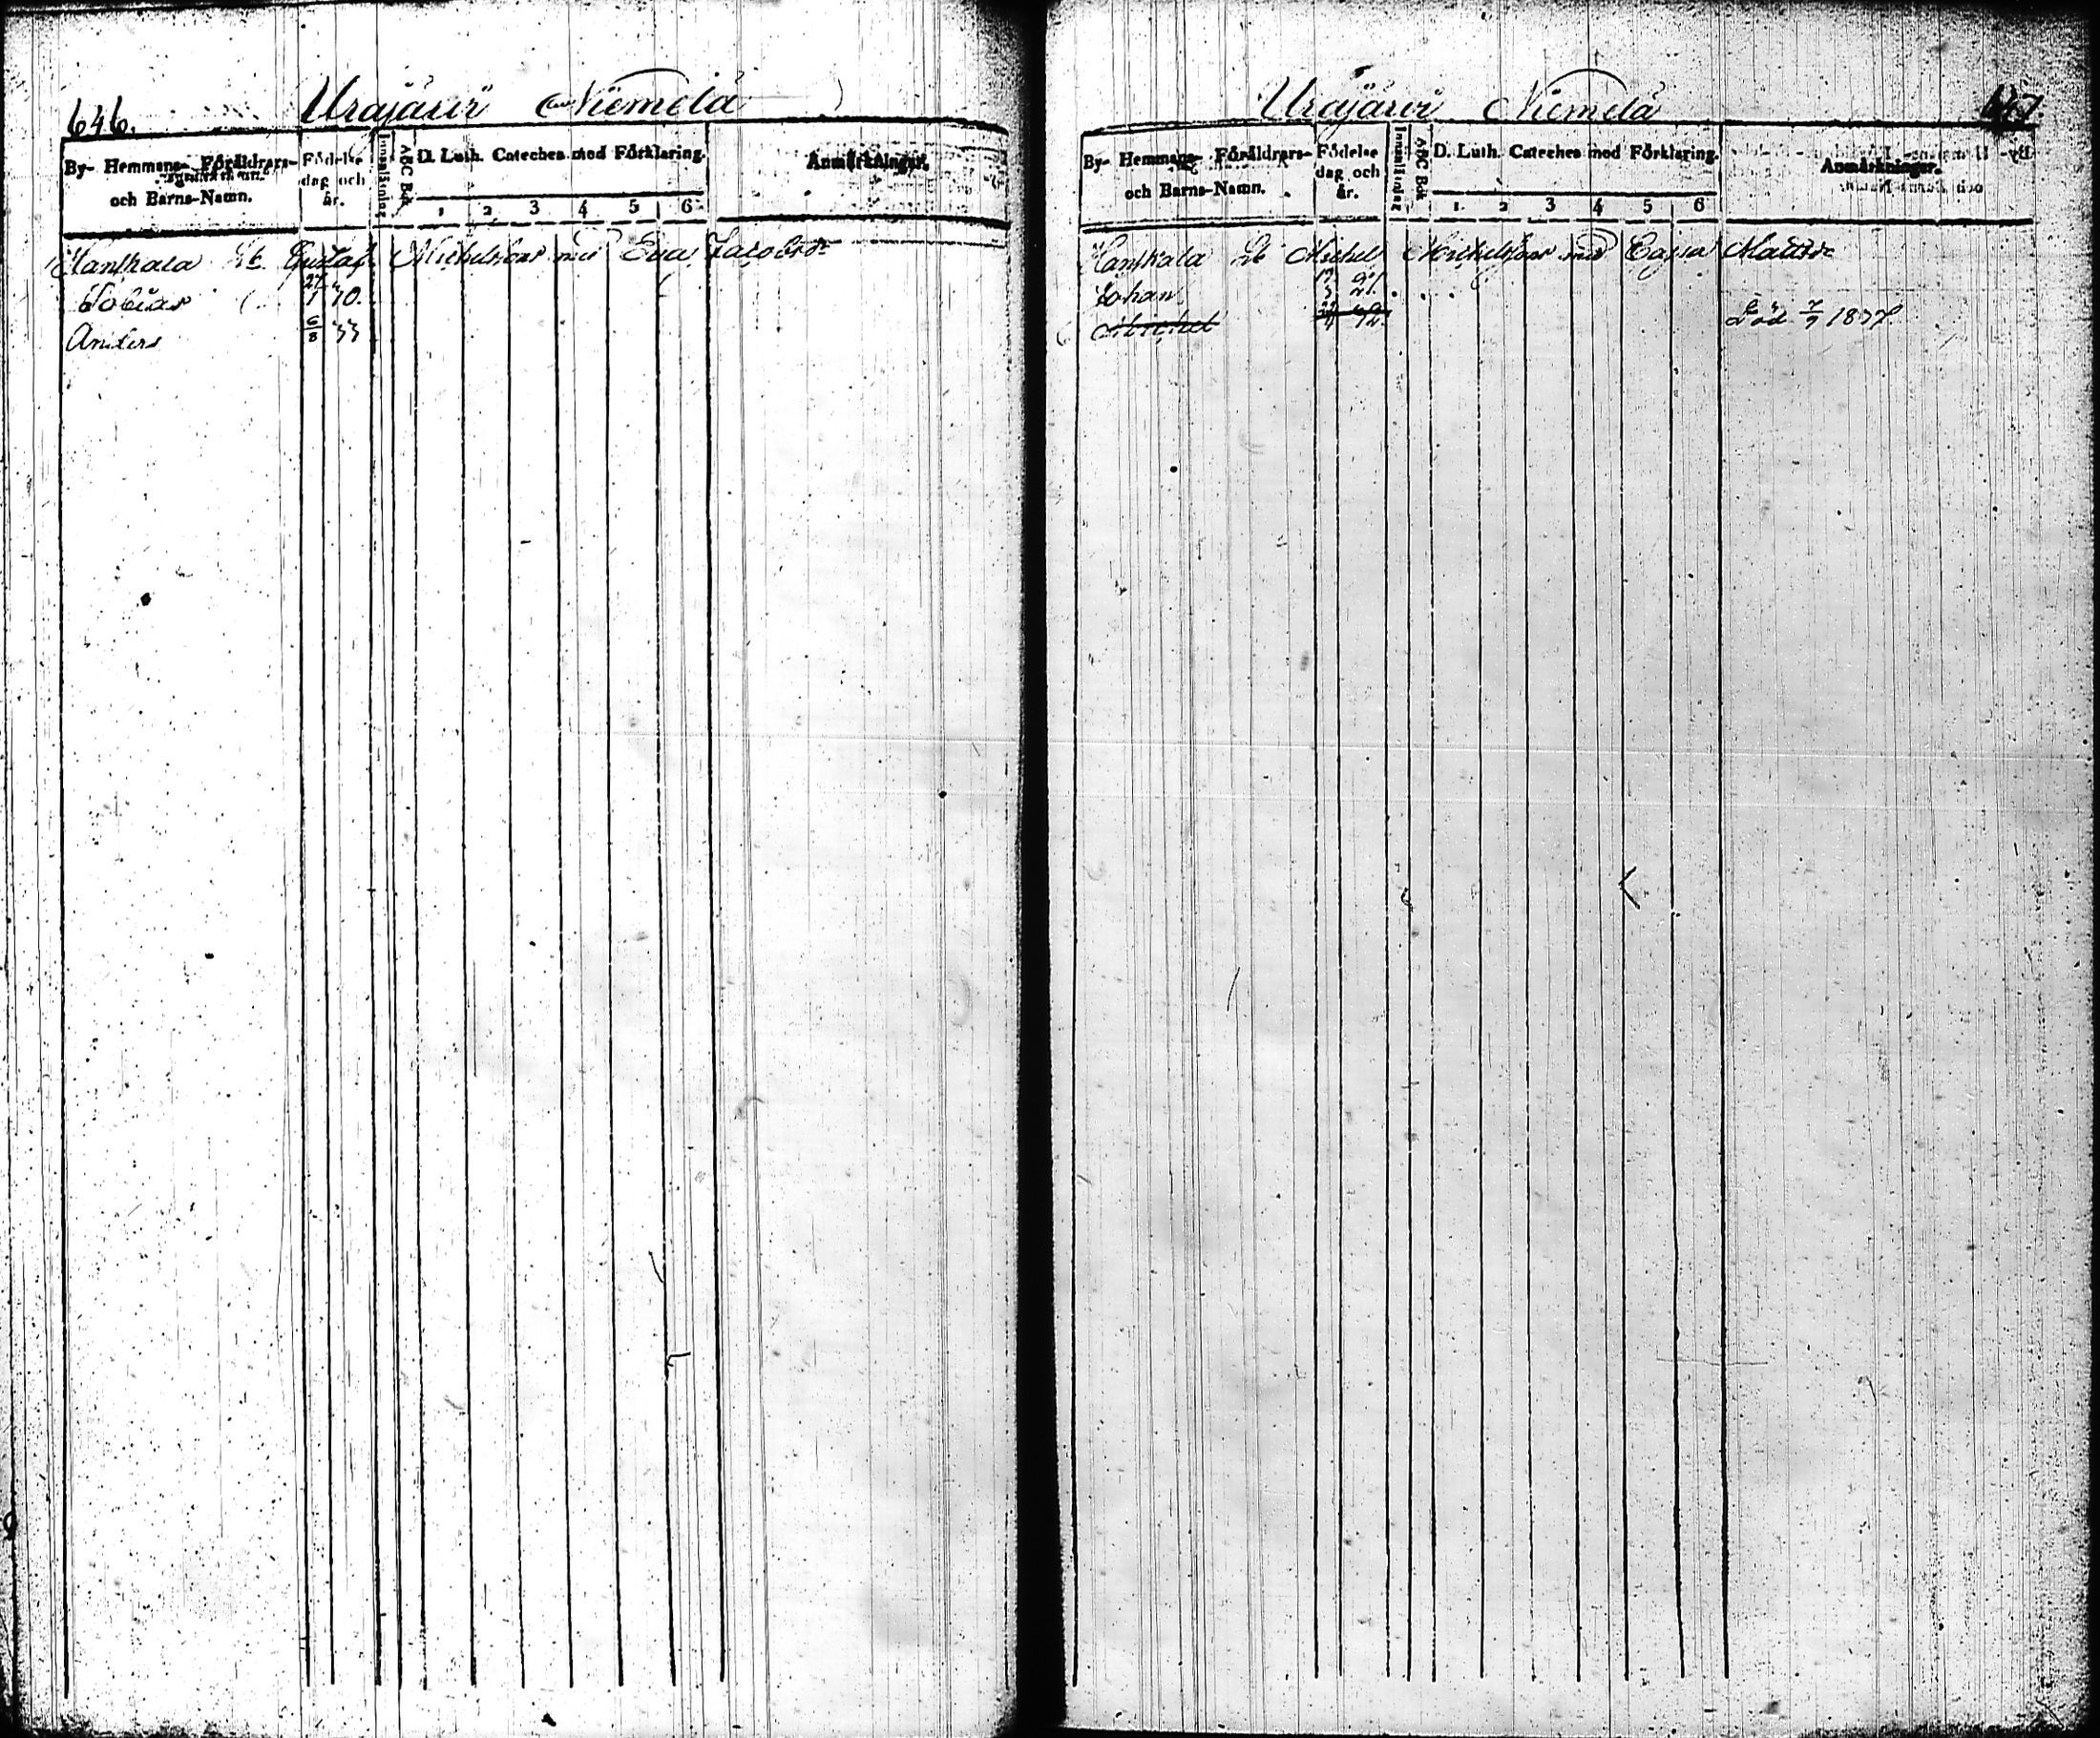 646.
Urajärvi Niemelä
By- Hemmans- Föräldrars-
och Barns-Namn.
Födelse
dag och
år.
Innanläsning
ABC Bok
D. Luth. Cateches med Förklaring.
1 2 3 4 5 6
Anmärkningar.
Hanskala Gustaf Michelsson med Eva Jacobsdr
Tobias 27/1 30.
Anders 6/8 33
Urajärvi Niemelä
647.
By- Hemmans- Föräldrars-
och Barns-Namn.
Födelse
dag och
år.
Innanläsning
ABC Bok
D. Luth. Cateches med Förklaring.
1 2 3 4 5 6
Anmärkningar.
Hanskala Michel Michelsson med Cajsa Mattsdr
Johan
Michel Död 7/7 1837.